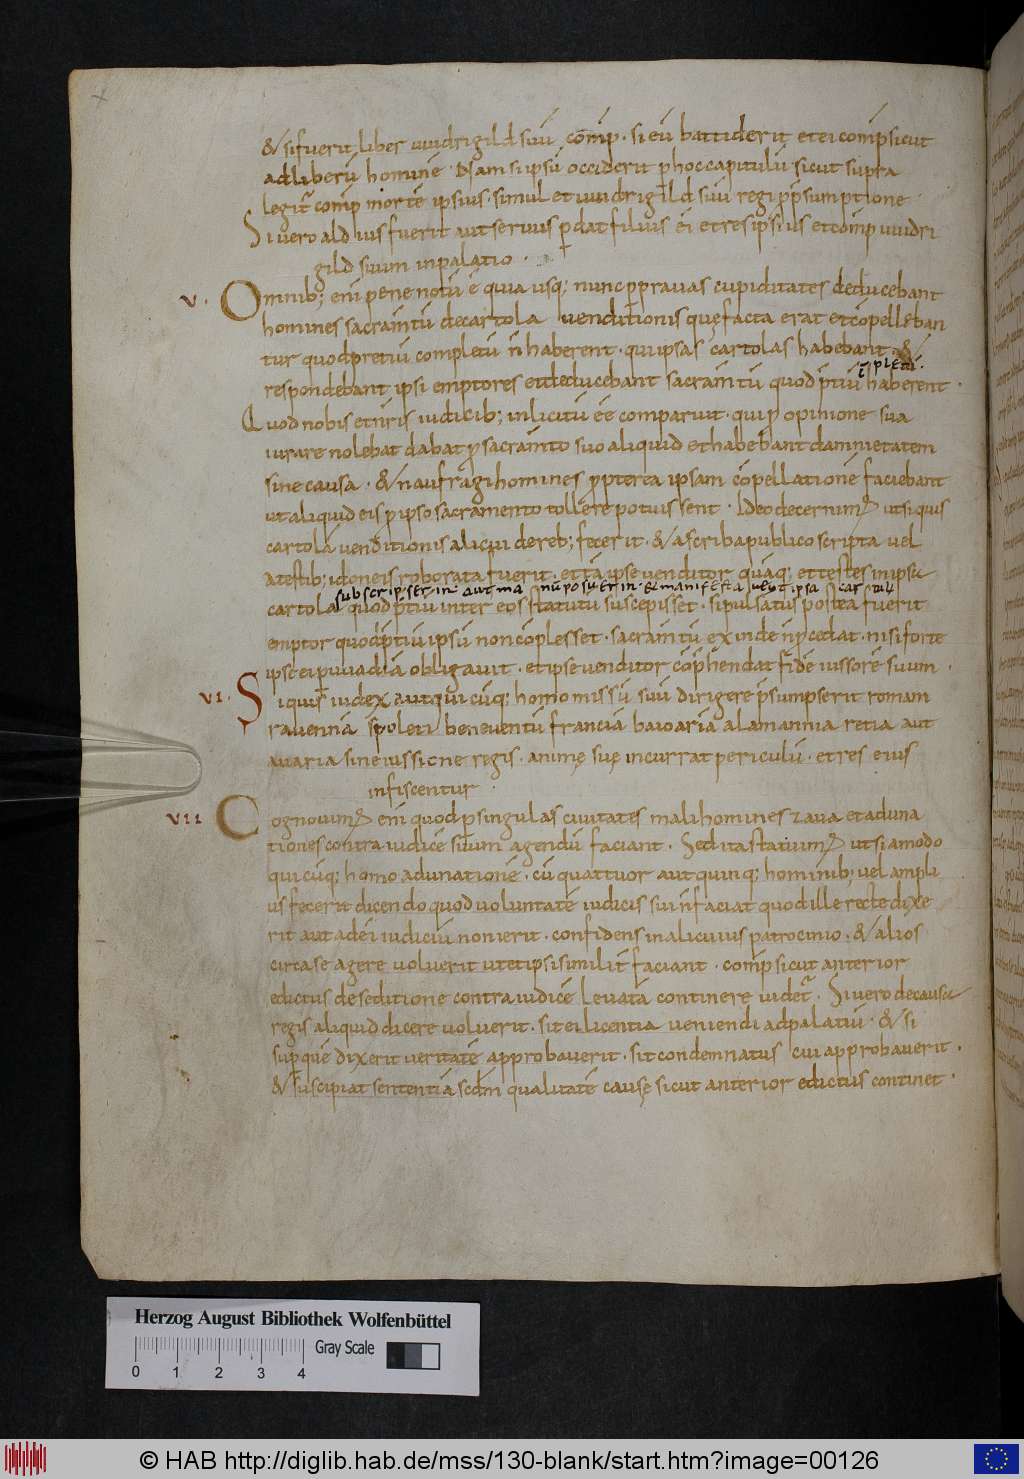 & si fuerit liber uuidrigild suū cōmp. si eū battiderit et ei comp sicut
ad liberū hominē. Nam si ipsū occiderit p hoc capitulū sicut supra
legit̄ comp mortē ipsius. simul et uuidrigild suū regi p̄ p̄sumptione
Si uero aldius fuerit aut seruus p̱dat filius ei et res ipsius et comp uuidri
gild suum in palatio.
V. Omnib; eni pene notū ē quia usq; nunc p prauas cupiditates deducebant
homines sacram̄tū de cartola uenditionis quę facta erat et cōpelleban
tur quod pretiū completū n̄ haberent. qui ipsas cartolas habebant &
īpletū.
respondebant ipsi emptores et deducebant sacram̄tū quod p̄tiū haberent.
Quod nobis et nr̄is iudicib; inlicitū ēē comparuit. qui p opinione sua
iurare nolebat dabat p sacram̄to suo aliquid et habebant damnietatem
sine causa. & naufragi homines p̱pterea ipsam cōpellationē faciebant
ut aliquid eis p̱ ipso sacramento tollere potuissent. Ideo decernim; ut si quis
cartolā uenditionis alicui de reb; fecerit. & a scriba publico scripta uel
a testib; idoneis roborata fuerit. et tā ipse uenditor quāq; et testes in ipsa
subscripserin aut ma nū posuerin & manifesta uert ipsa cartulā
cartola quod p̄tiū inter eos statutū suscepisset. si pulsatus postea fuerit
emptor quod p̄tiū ipsū non cōplesset. sacram̄tū exinde n̄ p̱cedat. nisi forte
ipse ei p uuadiā obligauit. et ipse uenditor cōp̱hendat fideiussorē suum.
VI. Si quis iudex aut quicūq; homo missū suū dirigere p̄sumpserit romam
rauennā spoleti beneuentū franciā baioariā alamannia retia aut
auaria sine iussione regis. animę suę incurrat periculū. et res eius
infiscentur.
VII Cognouim; eni quod p singulas ciuitates mali homines zaua et aduna
tiones contra iudicē suum agendū faciant. Sed ita statuim; ut si amodo
quicūq; homo adunationē. cū quattuor aut quinq; hominib; uel ampli
us fecerit dicendo quod uoluntatē iudicis sui n̄ faciat quod ille recte dixe
rit aut ad ei iudiciū non ierit. confidens in alicuius patrocinio. & alios
circa se agere uoluerit ut et ipsi similit̄ faciant. comp sicut anterior
edictus de seditione contra iudicē leuata continere uidet̄. Si uero de causa
regis aliquid dicere uoluerit. sit ei licentia ueniendi ad palatiū. & si
sup quē dixerit ueritatē approbauerit. sit condemnatus cui approbauerit.
& suscipiat sententiā scdm qualitatē causę sicut anterior edictus continet.
Herzog August Bibliothek Wolfenbüttel
Gray Scale
0 1 2 3 4
© HAB http://diglib.hab.de/mss/130-blank/start.htm?image=00126